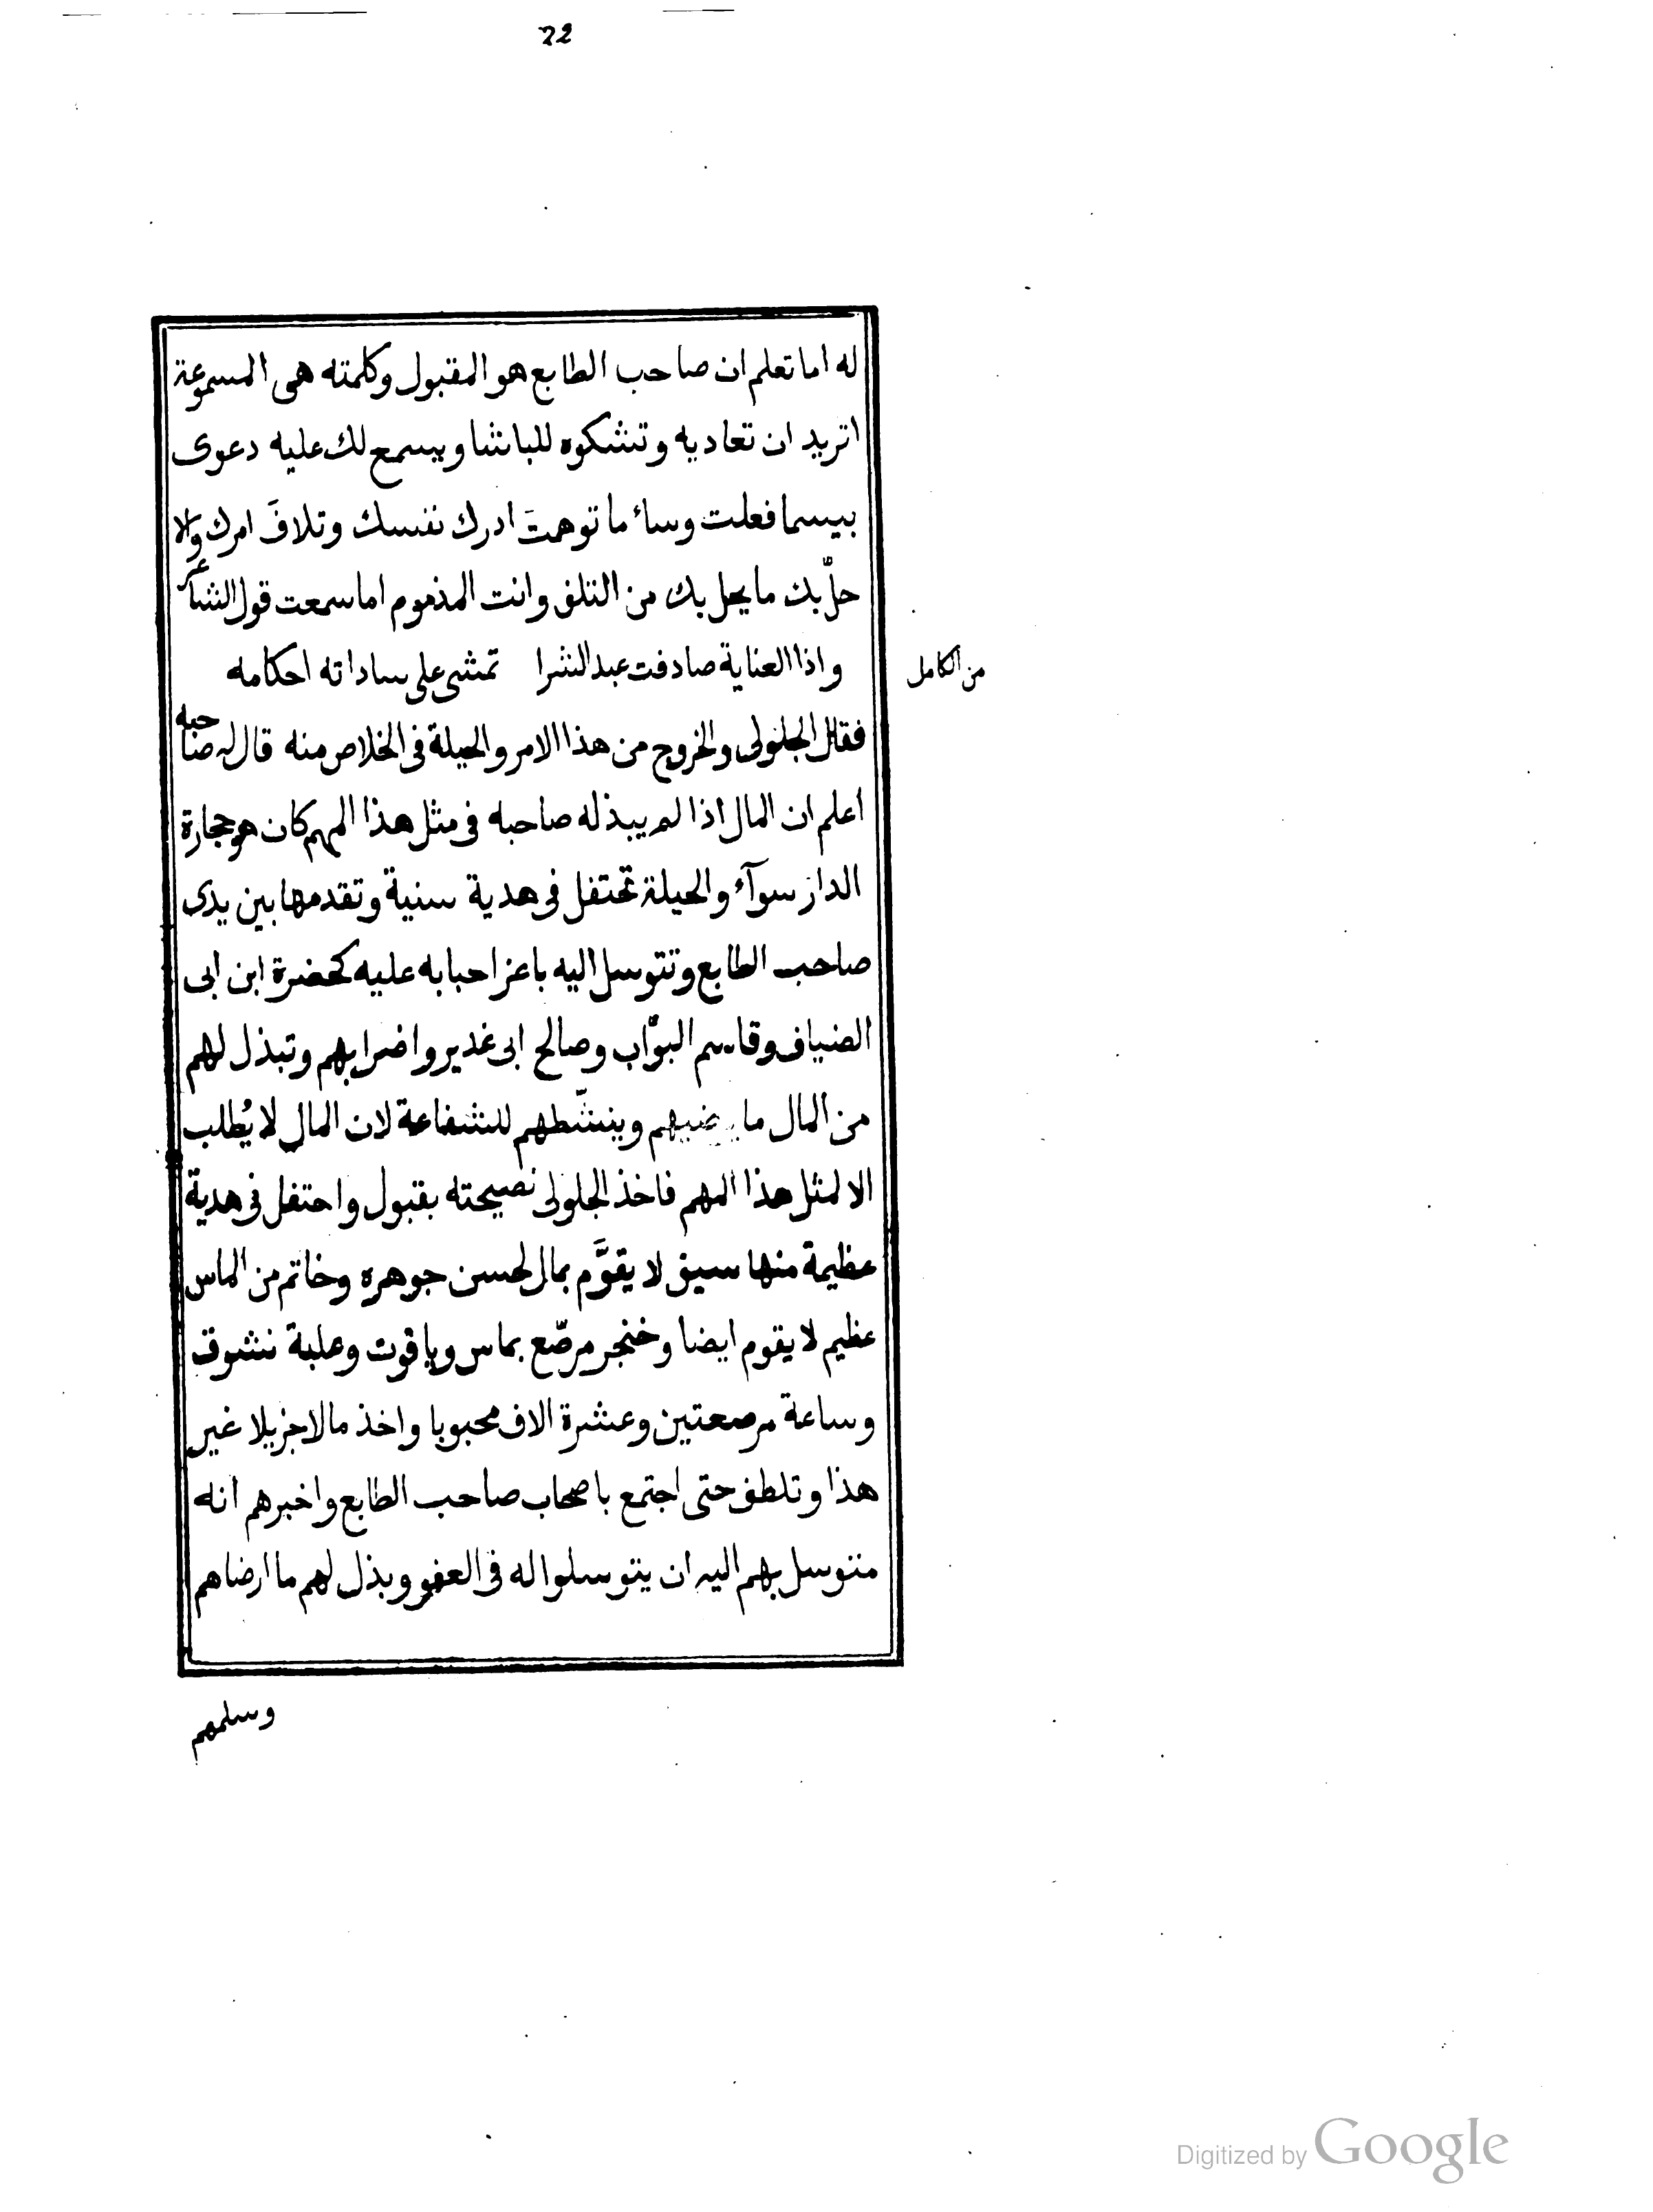 22
له اما تعلم ان صاحب الطابع هو المقبول وكلمته هى المسموعة
اتريد ان تعاديه وتشكوه للباشا ويسمع لك عليه دعوى
بيسما فعلت وساء ما توهمتَ ادرك نفسك وتلافَ امرك والا
حلّ بك ما يحل بك من التلف وانت المذموم اما سمعت قول الشاعر
واذا العناية صادفت عبد الشرا تمشى على ساداته احكامه
من الكامل
فقال الجلولى والخروج من هذا الامر والحيلة فى الخلاص منه قال له صاحبه
اعلم ان المال اذا لم يبذله صاحبه فى مثل هذا المهم كان هو وحجارة
الدار سوآء والحيلة تحتفل فى هدية سنية وتقدمها بين يدى
صاحب الطابع وتتوسل اليه باعز احبابه عليه كحضرة ابن ابى
الضياف وقاسم البوّاب وصالح ابى غدير واضرابهم وتبذل لهم
من المال ما يرضيهم وينشّطهم للشفاعة لان المال لا يُطلب
الا لمثل هذا المهم فاخذ الجلولى نصيحته بقبول واحتفل فى هدية
عظيمة منها سيف لا يقوَّم بمال لحسن جوهره وخاتم من الماس
عظيم لا يقوم ايضا وخنجر مرصّع بماس وياقوت وعلبة نشوق
وساعة مرصعتين وعشرة الاف محبوبا واخذ مالا جزيلا غير
هذا وتلطف حتى اجتمع باصحاب صاحب الطابع واخبرهم انه
متوسل بهم اليه ان يتوسلوا له فى العفو وبذل لهم ما ارضاهم
وسلمهم
Digitized by Google